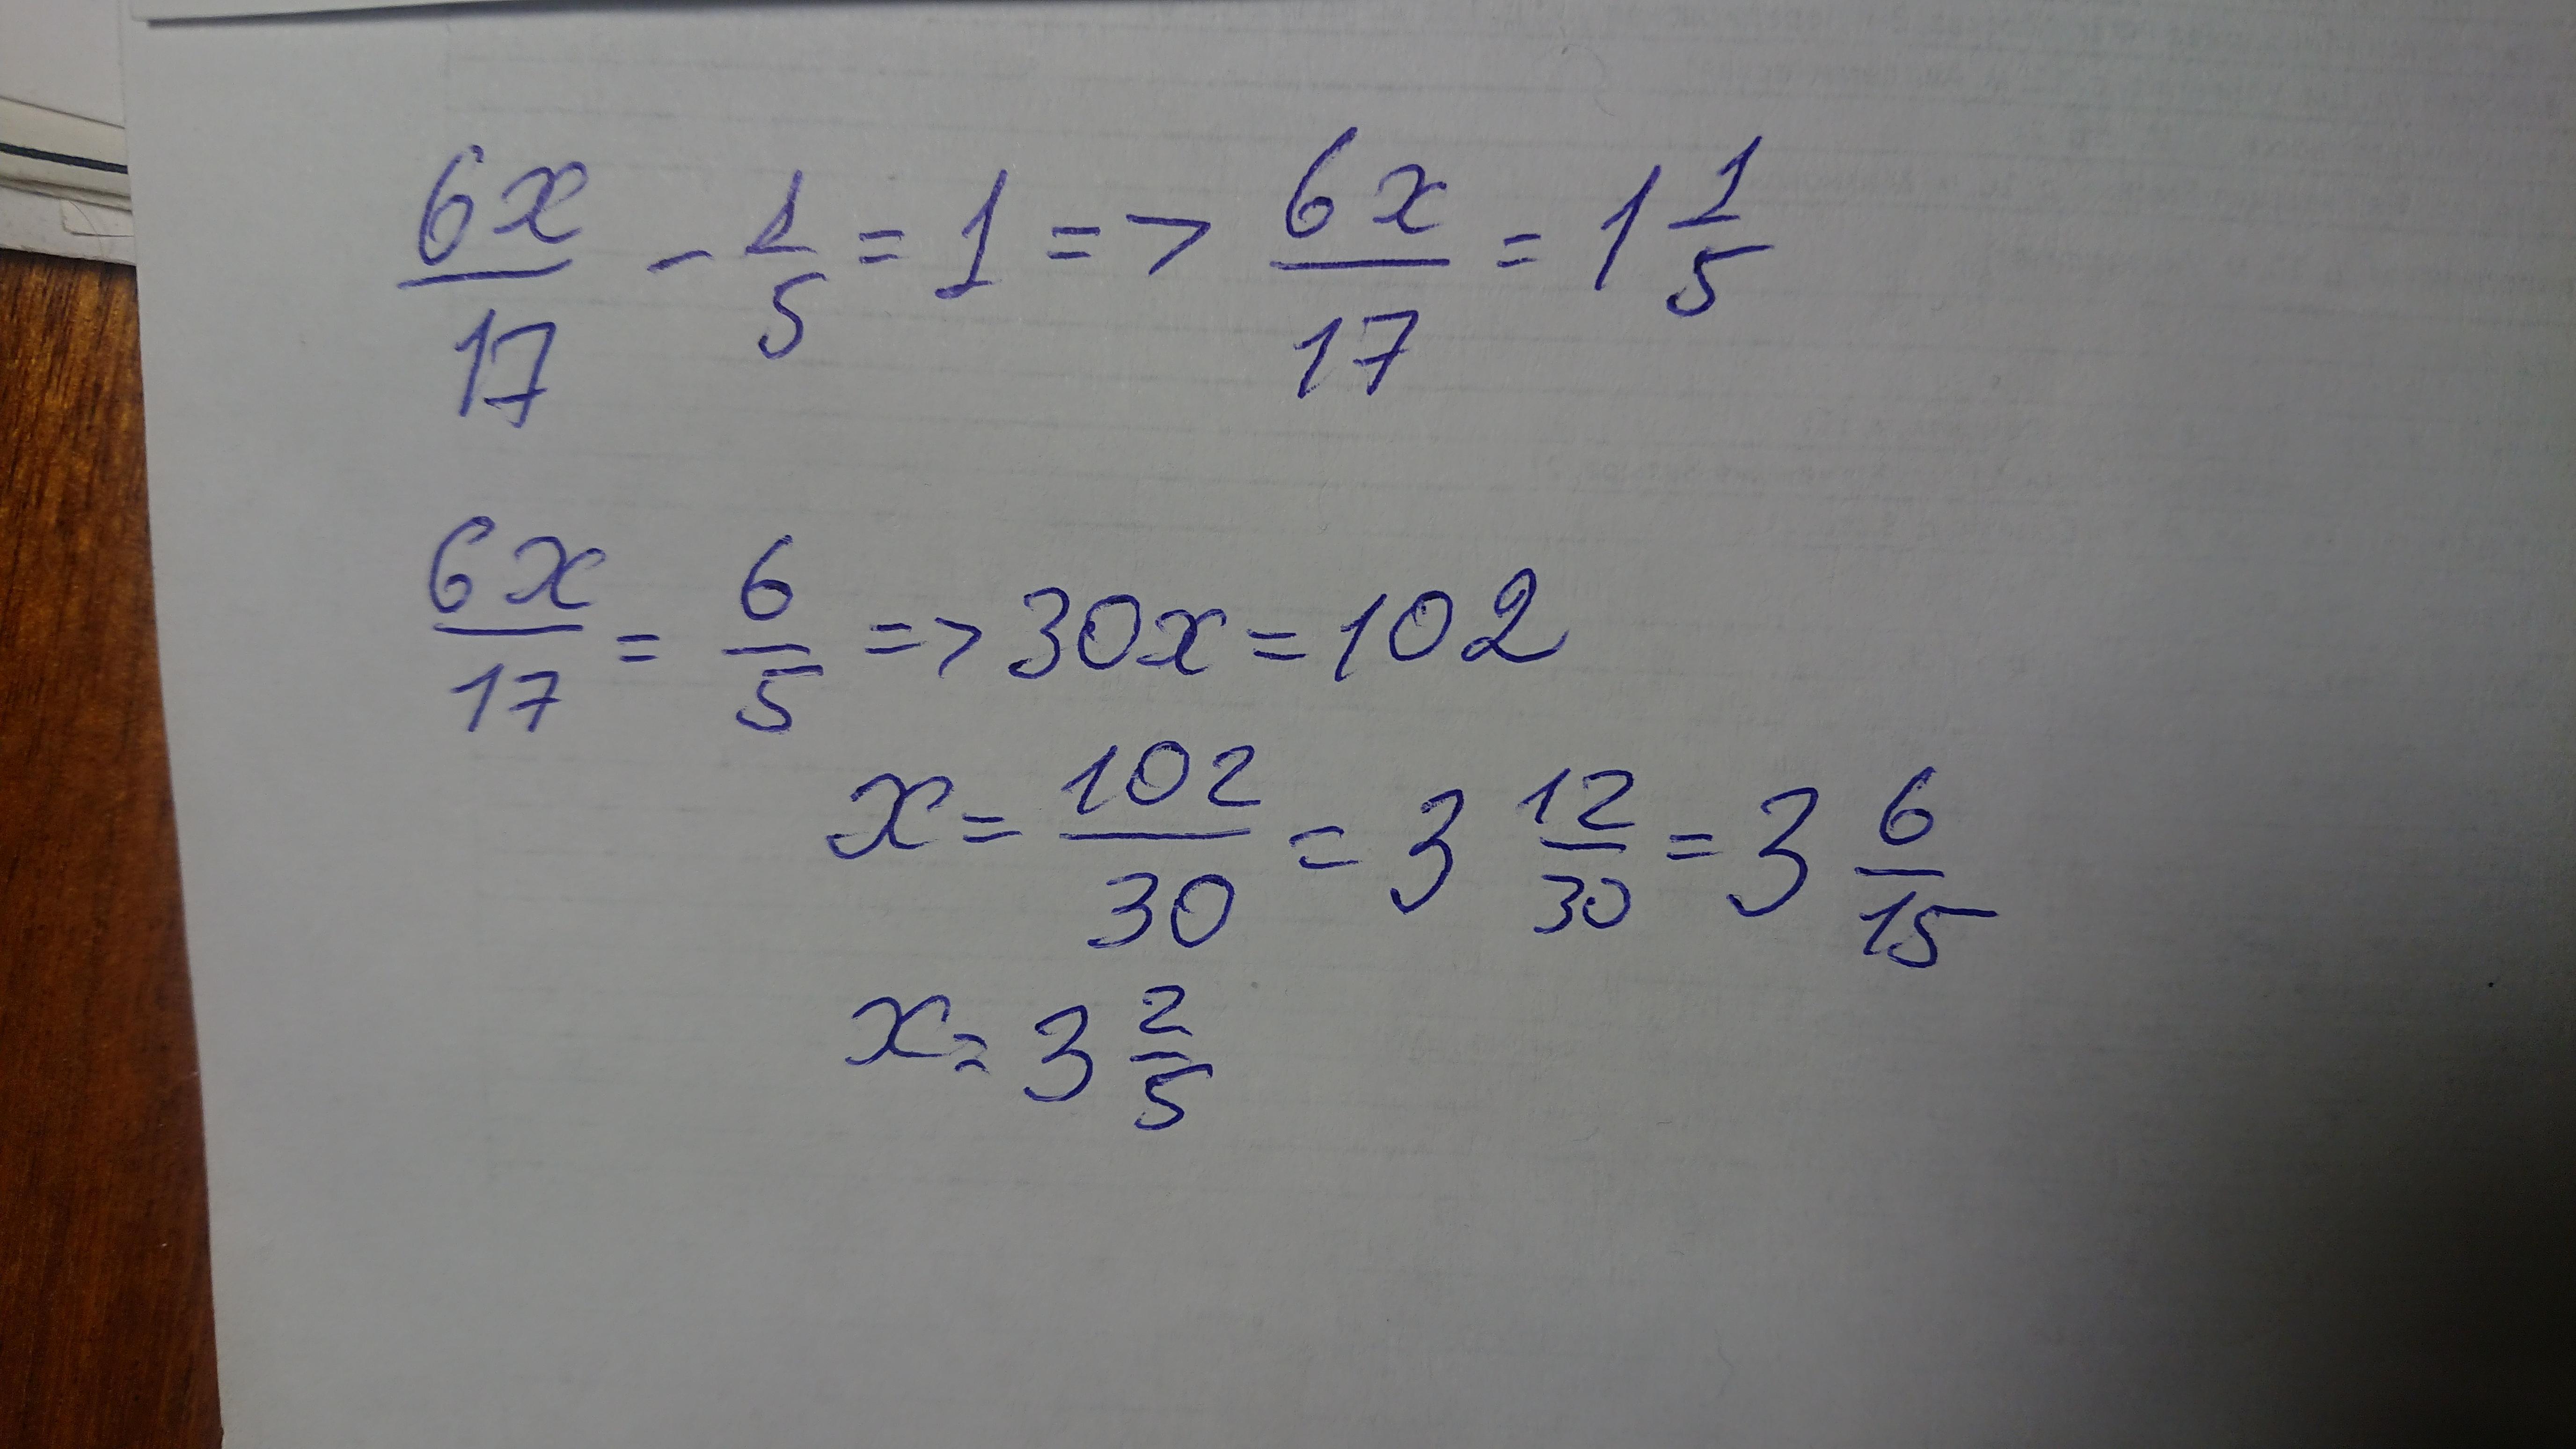 6x/17 - 1/5 = 1 => 6x/17 = 1 1/5
6x/17 = 6/5 => 30x = 102
x = 102/30 = 3 12/30 = 3 6/15
x = 3 2/5